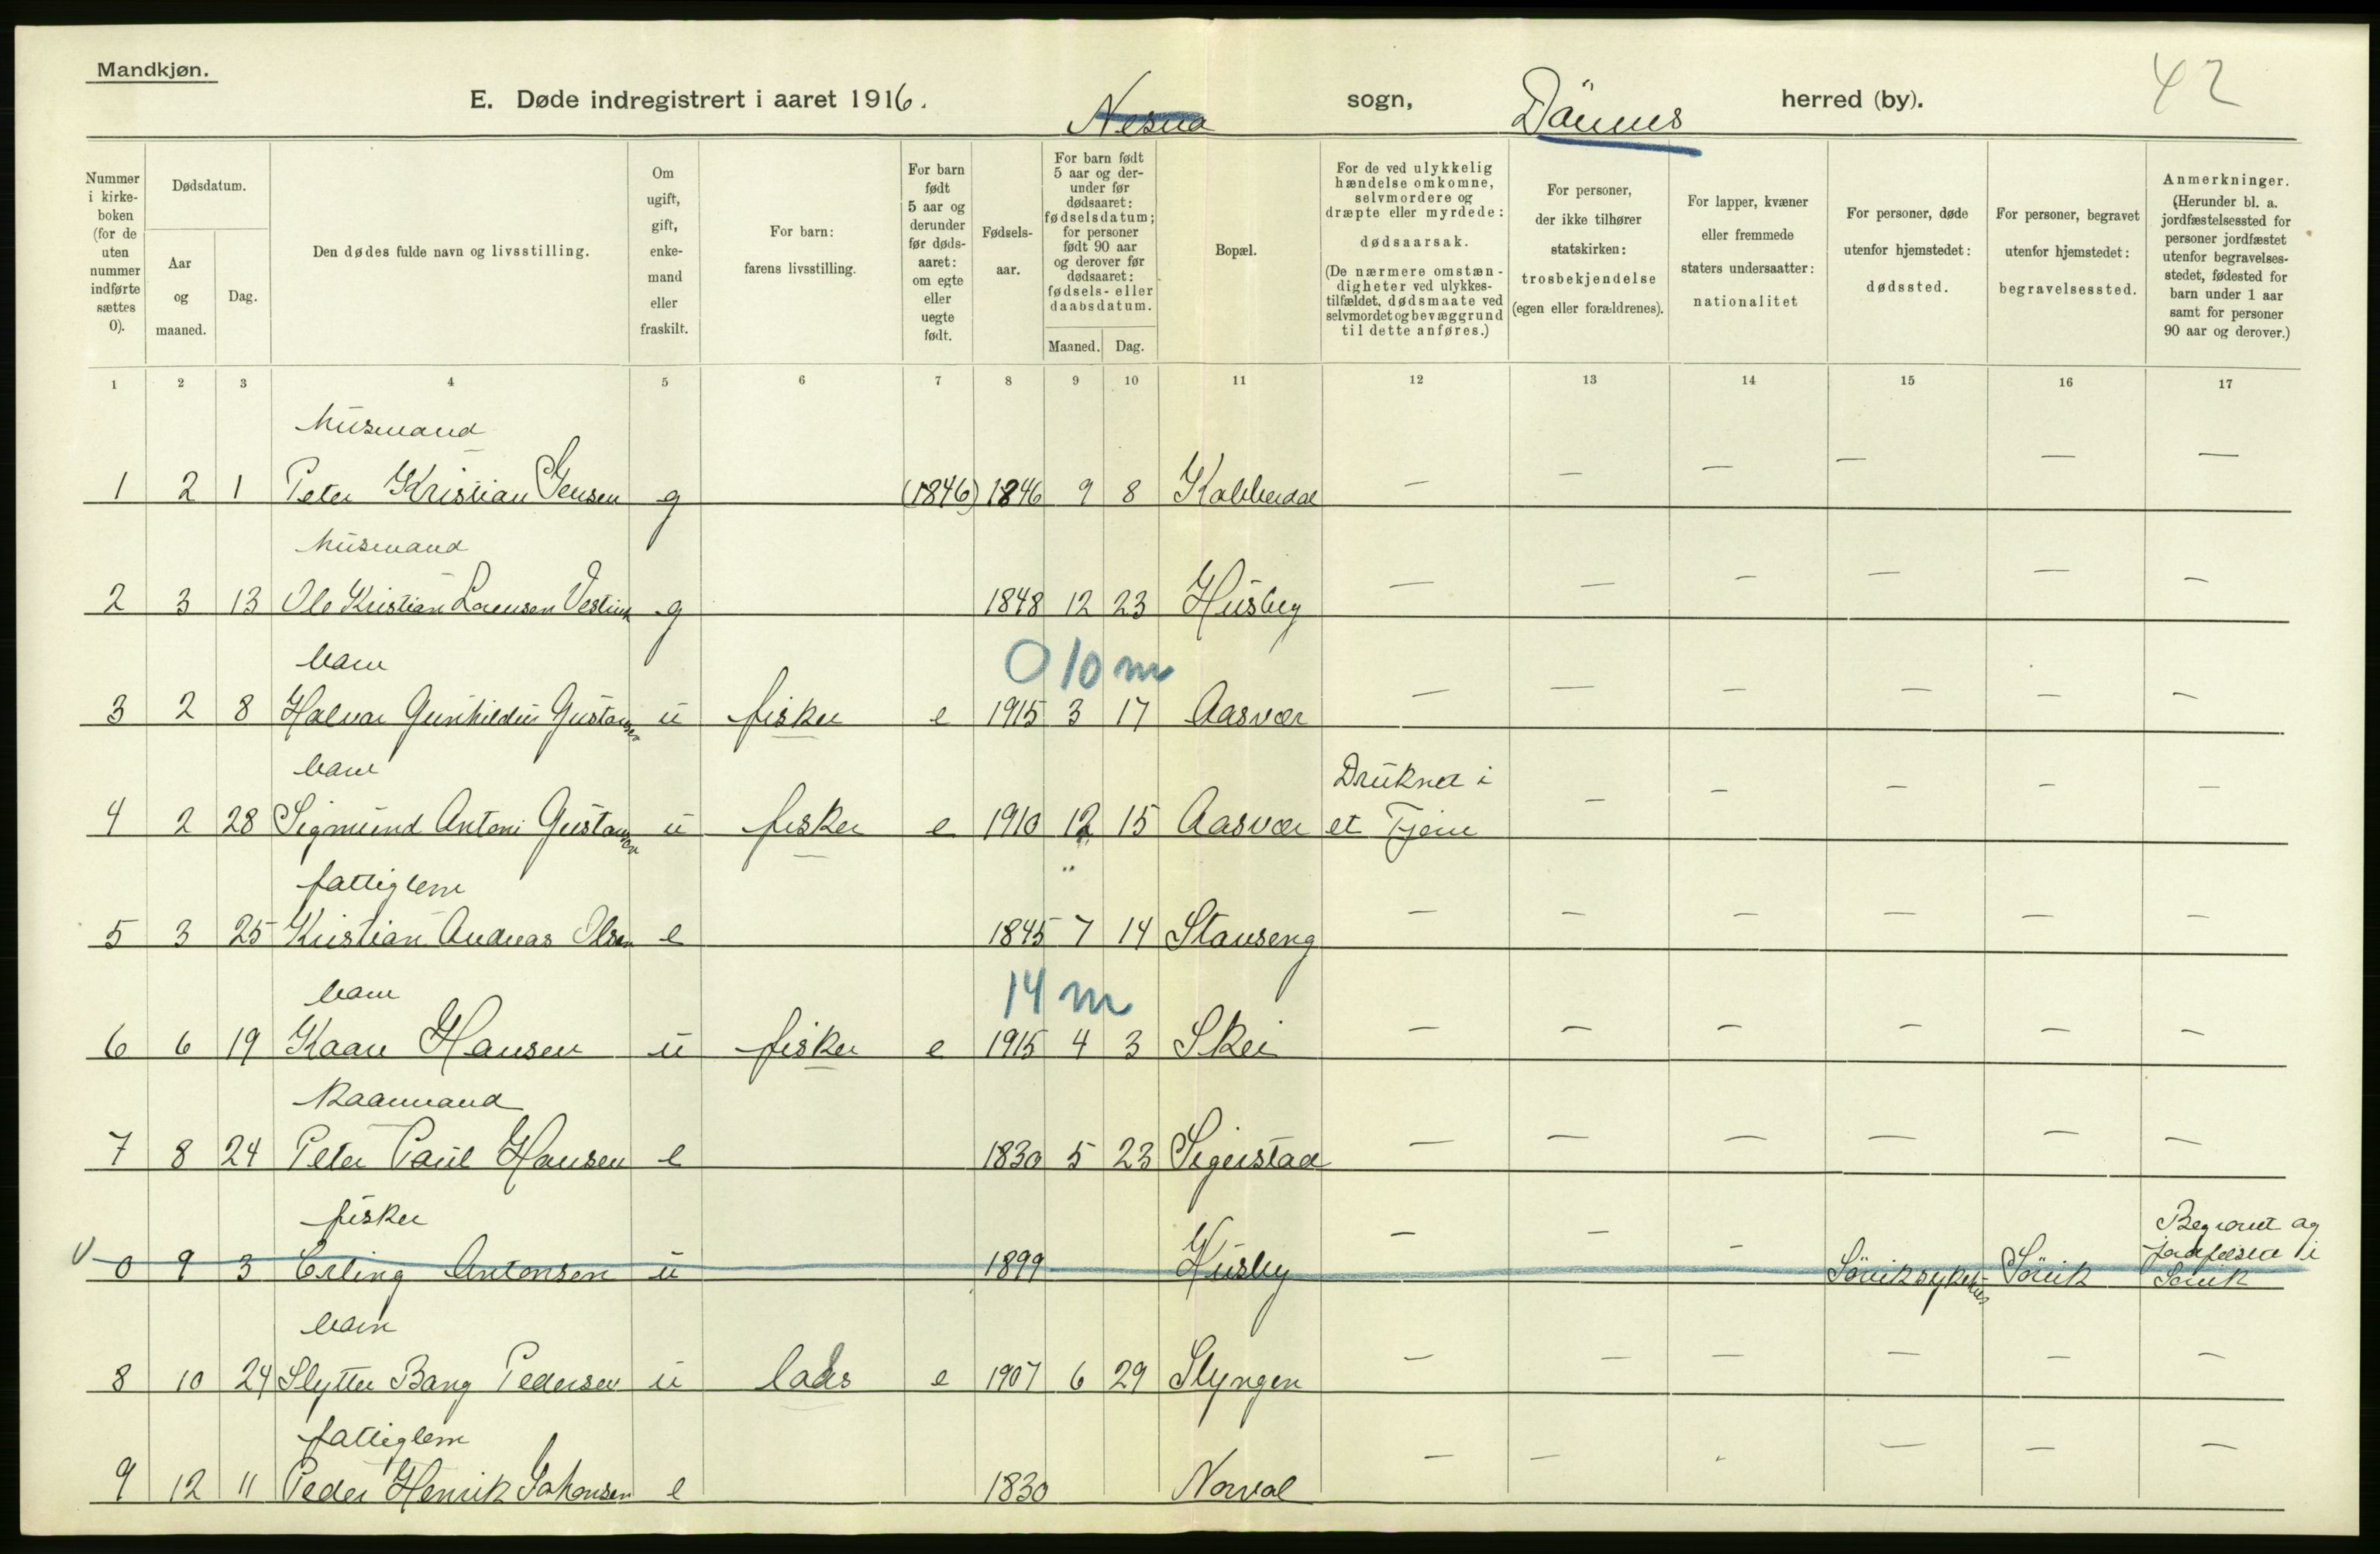 Mandkjøn.
E. Døde indregistrert i aaret 1916. Nesna sogn, Dönnes herred (by). 42
Nummer i kirke-boken (for de uten nummer indførte sættes 0).
Dødsdatum.
Aar og maaned.
Dag.
Den dødes fulde navn og livsstilling.
Om ugift, gift, enke-mand eller fraskilt.
For barn: farens livsstilling.
For barn født 5 aar og derunder før døds-aaret: om egte eller uegte født.
Fødsels-aar.
For barn født 5 aar og der-under før dødsaaret: fødselsdatum; for personer født 90 aar og derover før dødsaaret: fødsels- eller daabsdatum.
Maaned. Dag.
Bopæl.
For de ved ulykkelig hændelse omkomne, selvmordere og dræpte eller myrdede: dødsaarsak. (De nærmere omstæn-digheter ved ulykkes-tilfældet, dødsmaate ved selvmordet og bevæggrund til dette anføres.)
For personer, der ikke tilhører statskirken: trosbekjendelse (egen eller forældrenes).
For lapper, kvæner eller fremmede staters undersaatter: nationalitet
For personer, døde utenfor hjemstedet: dødssted.
For personer, begravet utenfor hjemstedet: begravelsessted.
Anmerkninger. (Herunder bl. a. jordfæstelsessted for personer jordfæstet utenfor begravelses-stedet, fødested for barn under 1 aar samt for personer 90 aar og derover.)
1 2 3 4 5 6 7 8 9 10 11 12 13 14 15 16 17
husmand
1 2 1 Peter Kristian Jensen g (1846) 1846 9 8 Kobberdal — — — — — —
husmand
2 3 13 Ole Kristian Larensen g 1848 12 23 Husby — — — — — —
barn 0 10 m
3 2 8 Halvar Gunhildus Gustavsen u fisker e 1915 3 17 Aasvær — — — — — —
barn Druknet i
4 2 28 Sigmund Antoni Gustavsen u fisker e 1910 12 15 Aasvær et Tjern — — — — —
fattiglem
5 3 25 Kristian Andreas Olsen e 1845 7 14 Stavseng — — — — — —
barn 14 m
6 6 19 Kaare Hansen u fisker e 1915 4 3 Skei — — — — — —
Kaarmand
7 8 24 Peter Paul Hansen e 1830 5 23 Sigerstad — — — — — —
fisker Begravet og
V 0 9 3 Erling Antonsen u 1899 Husby — — — Sövik sykehus Sövik jordfæstet i
Sövik
barn
8 10 24 Slytter Bang Pedersen u lods e 1907 6 29 Slyngen — — — — — —
fattiglem
9 12 11 Peder Henrik Johansen e 1830 Norval — — — — — —